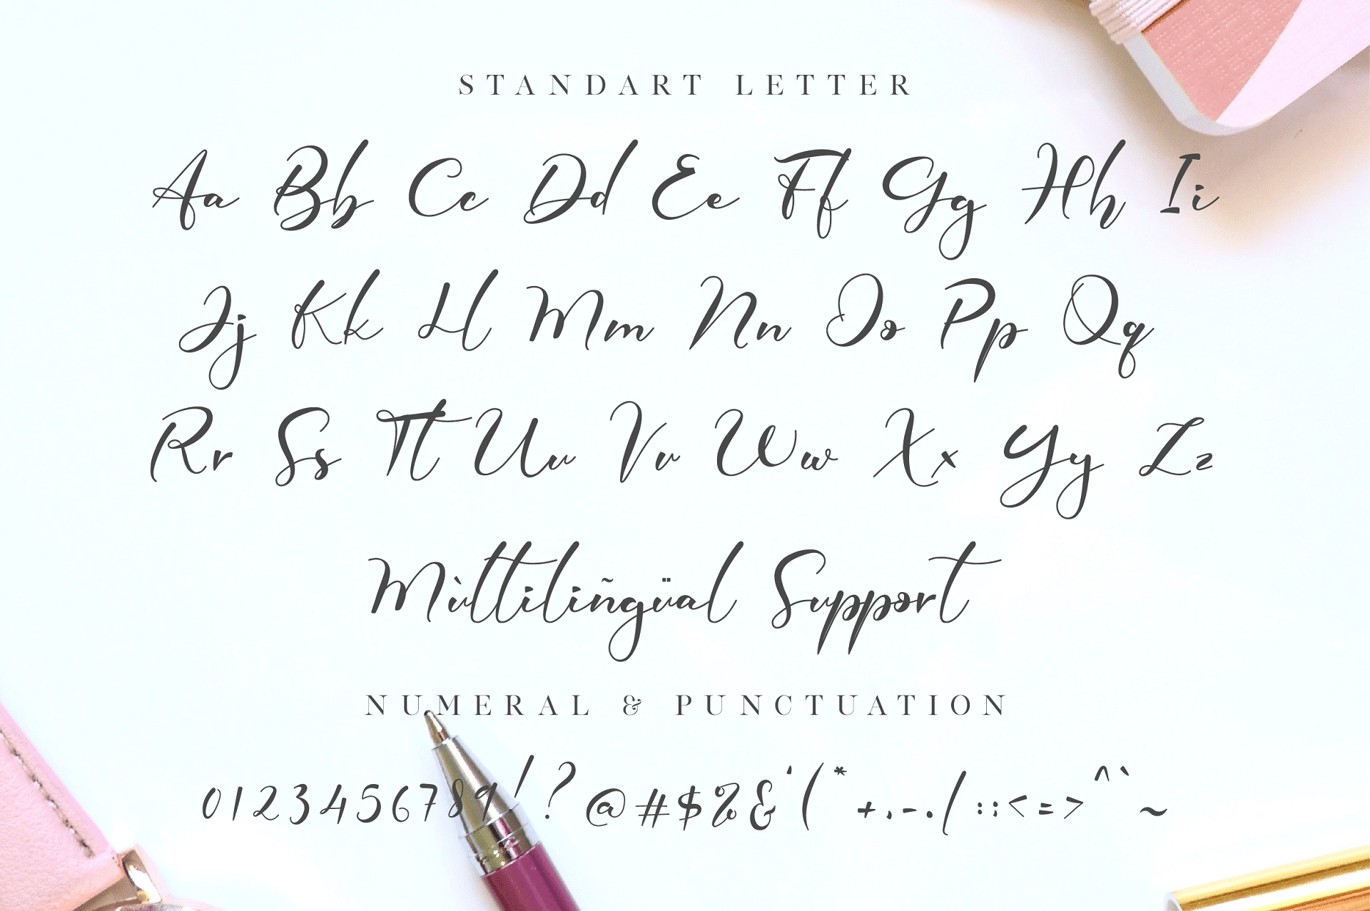 STANDART LETTER
Aa Bb Cc Dd Ee Ff Gg Hh Ii
Jj Kk Ll Mm Nn Oo Pp Qq
Rr Ss Tt Uu Vv Ww Xx Yy Zz
Mùltiliñgüal Support
NUMERAL & PUNCTUATION
0123456789!?@#$%&'(*+,-./:;<=>^`~